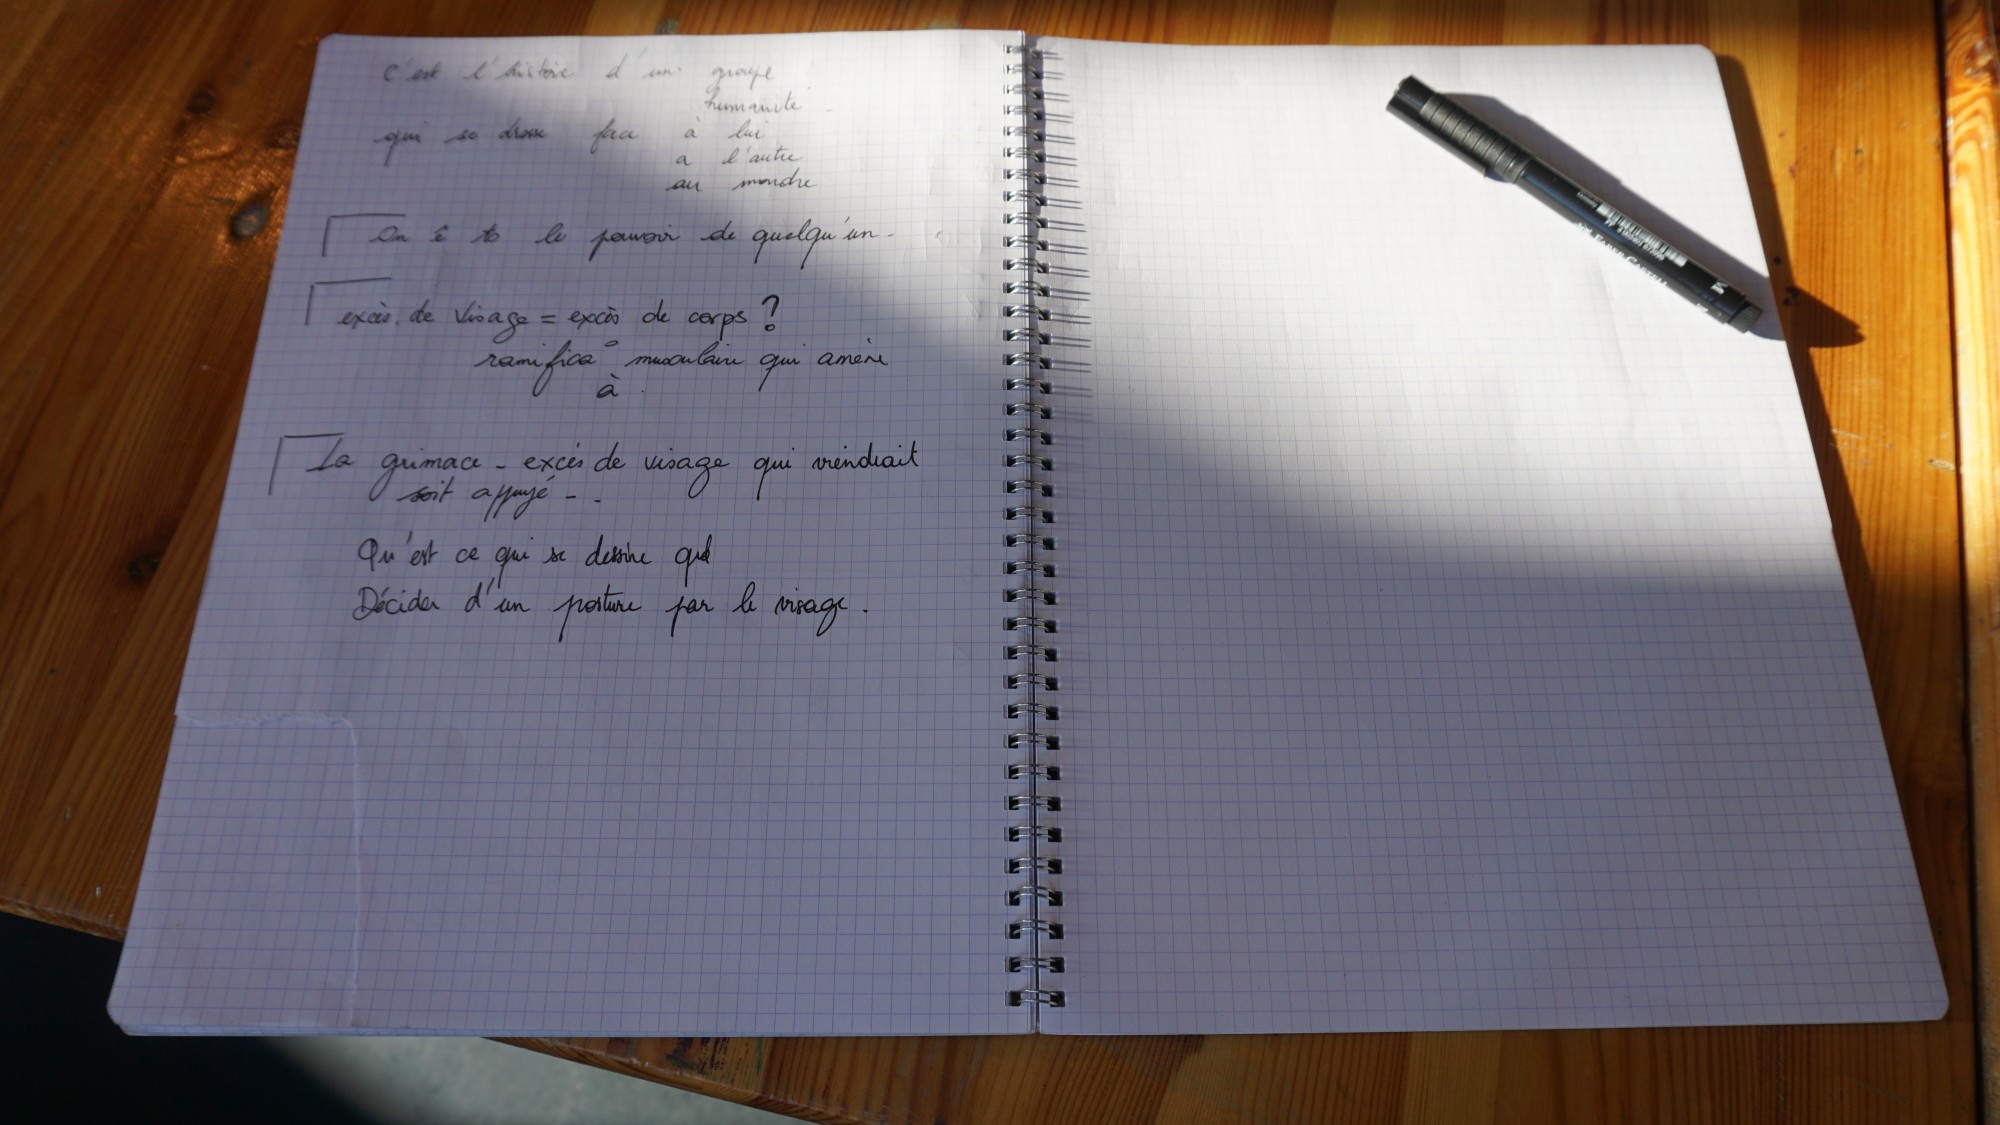 C'est l'histoire d'un groupe
humanité
qui se dresse face à lui
a l'autre
au mondre
On ê ts le pouvoir de quelqu'un.
excès de visage = excès de corps ?
ramifica° musculaire qui amène
à
La grimace - excès de visage qui viendrait
soit appuyé - -
Qu'est ce qui se dessine qd
Décider d'un posture par le visage.
FABER-CASTELL